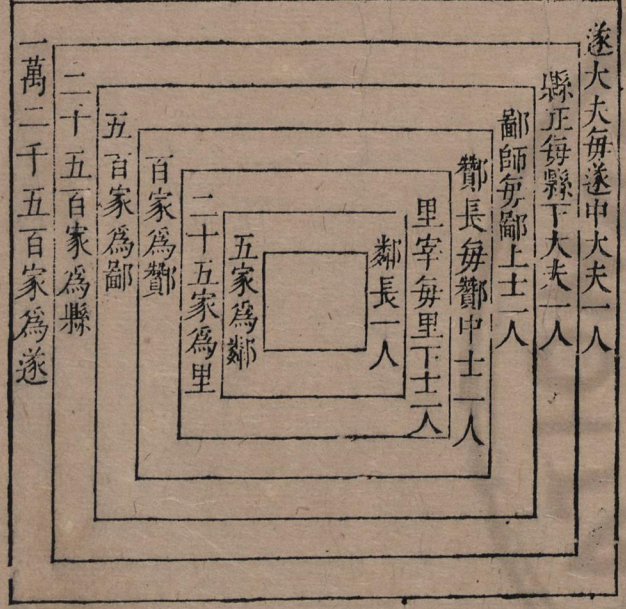 遂大夫毎遂中大夫一人
縣正毎縣下大夫一人
鄙師毎鄙上士一人
酇長毎酇中士一人
里宰毎里下士一人
鄰長一人
五家爲鄰
二十五家爲里
百家爲酇
五百家爲鄙
二十五百家爲縣
一萬二千五百家爲遂